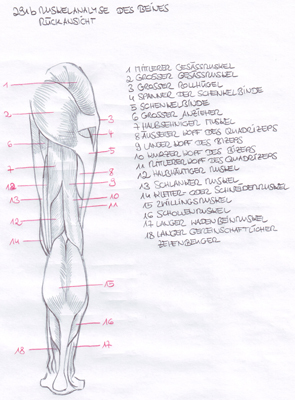 231b MUSKELANALYSE DES BEINES
RÜCKANSICHT
1 MITTLERER GESÄSSMUSKEL
2 GROSSER GESÄSSMUSKEL
3 GROSSER ROLLHÜGEL
4 SPANNER DER SCHENKELBINDE
5 SCHENKELBINDE
6 GROSSER ANZIEHER
7 HALBSEHNIGER MUSKEL
8 ÄUSSERER KOPF DES QUADRIZEPS
9 LANGER KOPF DES BIZEPS
10 KURZER KOPF DES BIZEPS
11 MITTLERER KOPF DES QUADRIZEPS
12 HALBHÄUTIGER MUSKEL
13 SCHLANKER MUSKEL
14 KUTTER- ODER SCHNEIDERMUSKEL
15 ZWILLINGSMUSKEL
16 SCHOLLENMUSKEL
17 LANGER WADENBEINMUSKEL
18 LANGER GEMEINSCHAFTLICHER
ZEHENBEUGER
1
2
3
4
6
5
7
8
12
9
13
10
11
12
14
15
16
18
17